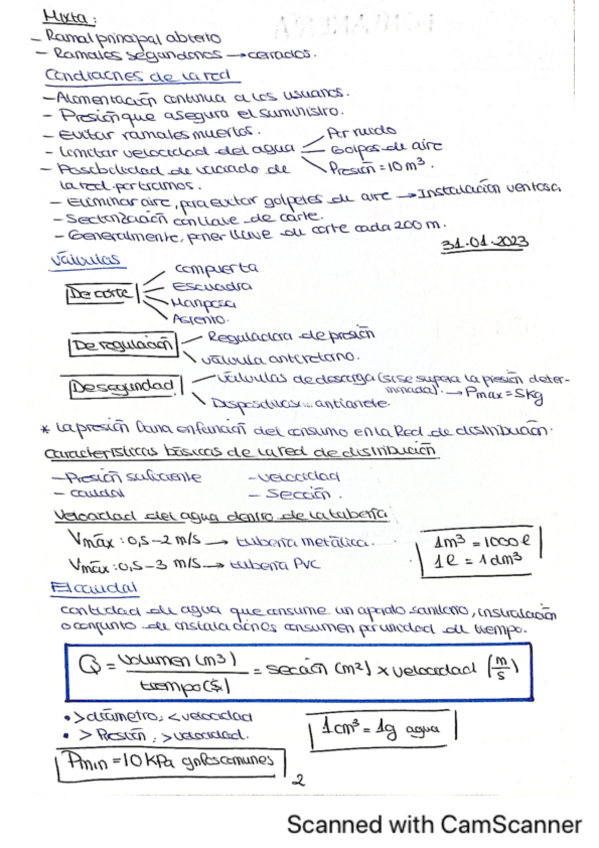 Mixta:
- Ramal principal abierto
- Ramales segundarios → cerrados.
Condiciones de la red
- Alimentación continua a los usuarios.
- Presión que asegura el suministro.
- Evitar ramales muertos.
- Limitar velocidad del agua
Por ruido
Golpes de aire
Presión = 10 m³.
- Possibilidad de vaciado de
la red por tramos.
- Eliminar aire, para evitar golpetes de aire → Instalación ventosa
- Sectorización con llave de corte.
- Generalmente, poner llave de corte cada 200 m.
31.01.2023
Válvulas
De corte
Compuerta
Escuadra
Mariposa
Asiento.
De regulación
Reguladora de presión
válvula antiretorno.
De seguridad
válvulas de descarga (si se supera la presión deter-
minada). → Pmax = 5kg
Dispositivos antiariete.
* La presión varia en función del consumo en la Red de distribución.
Características básicas de la red de distribución
- Presión suficiente
- velocidad
- caudal
- Sección.
Velocidad del agua dentro de la tubería
Vmáx: 0,5-2 m/s → tubería metálica.
Vmáx: 0,5-3 m/s → tubería PVC
1m³ = 1000 l
1l = 1dm³
El caudal
cantidad de agua que consume un aparato sanitario, instalación
o conjunto de instalaciones consumen por unidad de tiempo.
Q = Volumen (m3) / tiempo (s) = sección (m²) x velocidad (m/s)
• > diámetro, < velocidad
• > Presión, > velocidad.
1cm³ = 1g agua
Pmin = 10 kPa grifos comunes
2
Scanned with CamScanner